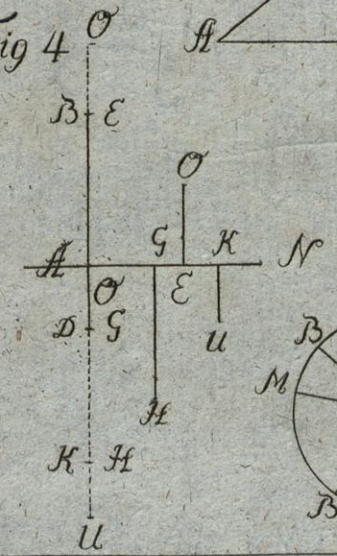 Fig 4 O
A
B E
O
G K N
A
O E
D G U
B
M
H
K H
B
U